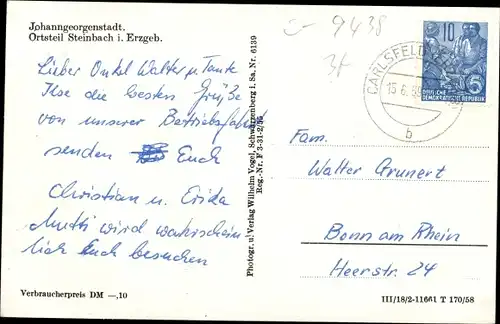 Johanngeorgenstadt,
Ortsteil Steinbach i. Erzgeb.
9438
Lieber Onkel Walter u. Tante
Ilse die besten Grüße
von unserer Betriebsfahrt
senden Euch
Christian u. Erika
Mutti wird wahrschein
lich Euch besuchen
Verbraucherpreis DM —,10
Photogr. u. Verlag Wilhelm Vogel, Schwarzenberg i. Sa. Nr. 6139
Reg.-Nr. F 3-31-2/56
CARLSFELD
15.6.
b
10
5
DEUTSCHE
DEMOKRATISCHE REPUBLIK
Fam.
Walter Grunert
Bonn am Rhein
Heerstr. 24
III/18/2-11661 T 170/58